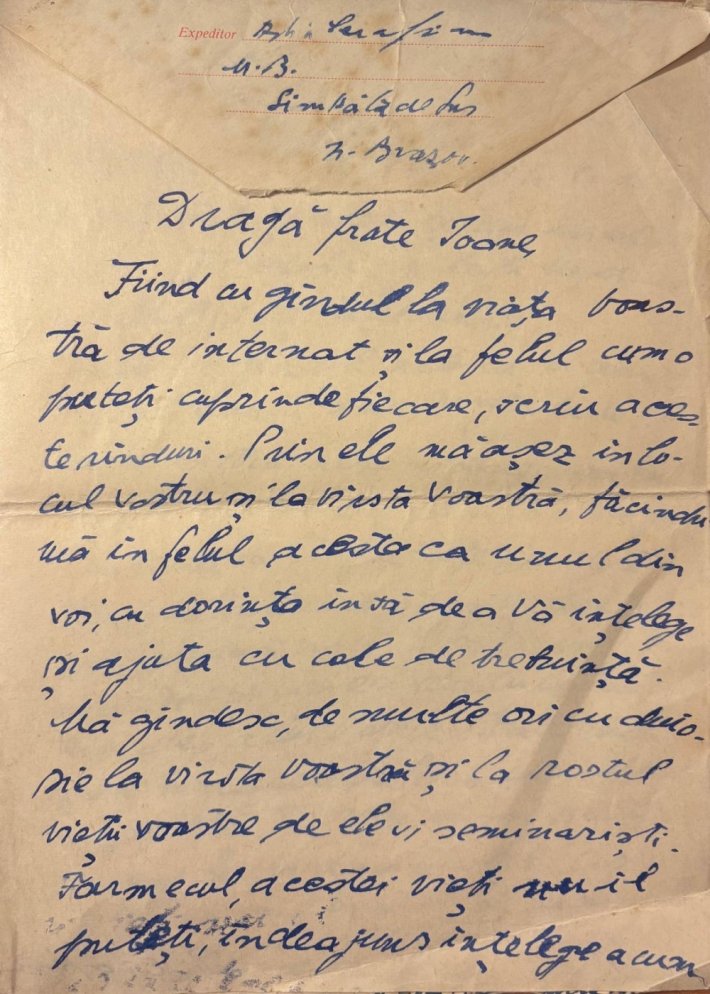 Expeditor Serafim
M.B.
Simbăta de Sus
R. Brașov.
Dragă frate Ioane,
Fiind cu gîndul la viața voas-
tră de internat și la felul cum o
puteți cuprinde fiecare, scriu aces-
te rînduri. Prin ele mă așez în lo-
cul vostru și la vîrsta voastră, făcîndu
mă în felul acesta ca unul din
voi, cu dorința însă de a vă înțelege
și ajuta cu cele de trebuință.
Mă gîndesc, de multe ori cu duio-
șie la vîrsta voastră și la rostul
vieții voastre de elevi seminariști.
Farmecul, acestei vieți nu îl
puteți, îndeajuns înțelege acum